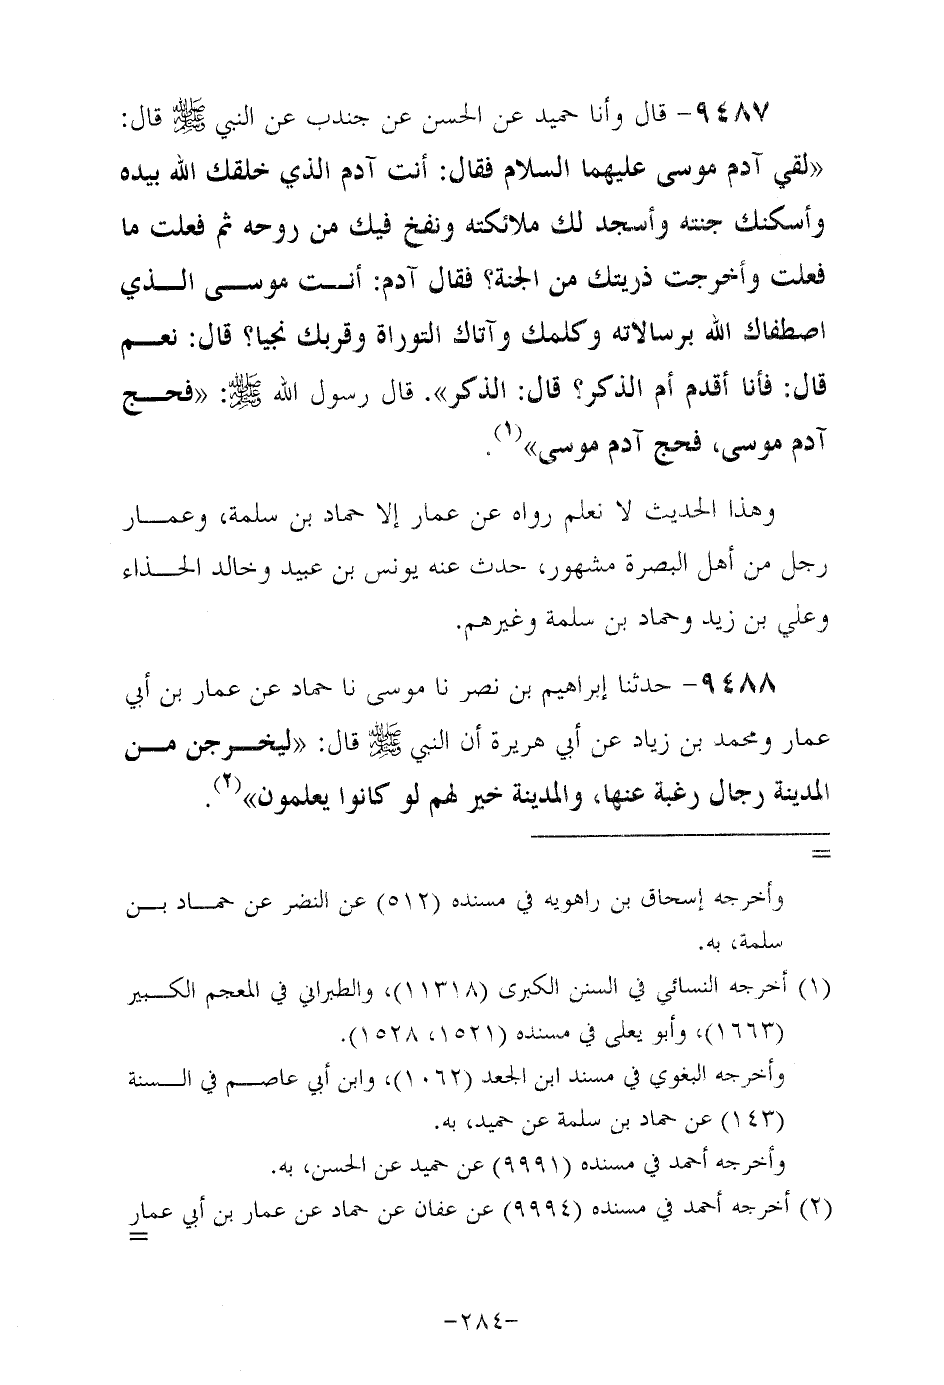 ٩٤٨٧- قال وأنا حميد عن الحسن عن جندب عن النبي ﷺ قال:
«لقي آدم موسى عليهما السلام فقال: أنت آدم الذي خلقك الله بيده
وأسكنك جنته وأسجد لك ملائكته ونفخ فيك من روحه ثم فعلت ما
فعلت وأخرجت ذريتك من الجنة؟ فقال آدم: أنت موسى الذي
اصطفاك الله برسالاته وكلمك وآتاك التوراة وقربك نجيا؟ قال: نعم
قال: فأنا أقدم أم الذكر؟ قال: الذكر». قال رسول الله ﷺ: «فحج
آدم موسى، فحج آدم موسى»(١).
وهذا الحديث لا نعلم رواه عن عمار إلا حماد بن سلمة، وعمار
رجل من أهل البصرة مشهور، حدث عنه يونس بن عبيد وخالد الحذاء
وعلي بن زيد وحماد بن سلمة وغيرهم.
٩٤٨٨- حدثنا إبراهيم بن نصر نا موسى نا حماد عن عمار بن أبي
عمار ومحمد بن زياد عن أبي هريرة أن النبي ﷺ قال: «ليخرجن من
المدينة رجال رغبة عنها، والمدينة خير لهم لو كانوا يعلمون»(٢).
=
وأخرجه إسحاق بن راهويه في مسنده (٥١٢) عن النضر عن حماد بن
سلمة، به.
(١) أخرجه النسائي في السنن الكبرى (١١٣١٨)، والطبراني في المعجم الكبير
(١٦٦٣)، وأبو يعلى في مسنده (١٥٢١، ١٥٢٨).
وأخرجه البغوي في مسند ابن الجعد (١٠٦٢)، وابن أبي عاصم في السنة
(١٤٣) عن حماد بن سلمة عن حميد، به.
وأخرجه أحمد في مسنده (٩٩٩١) عن حميد عن الحسن، به.
(٢) أخرجه أحمد في مسنده (٩٩٩٤) عن عفان عن حماد عن عمار بن أبي عمار
=
-٢٨٤-